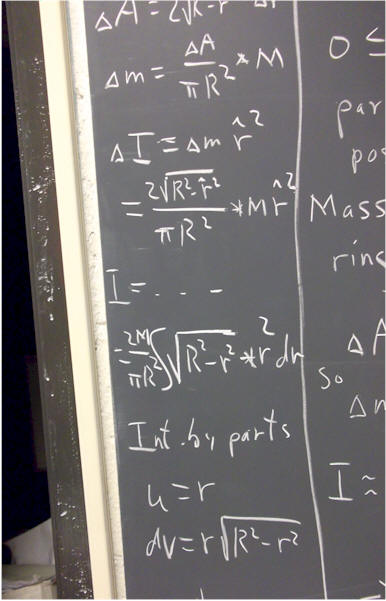 ΔA = 2√R²-r² Δr
Δm = ΔA/πR² * M
ΔI = Δm r̂²
= 2√R²-r̂²/πR² * M r̂²
I = - - - -
= 2M/πR² ∫√R²-r² * r² dr
Int. by parts
u = r
dv = r√R²-r²
0 ≤
par
pos
Mass
rin
ΔA
so
Δm
I ≈